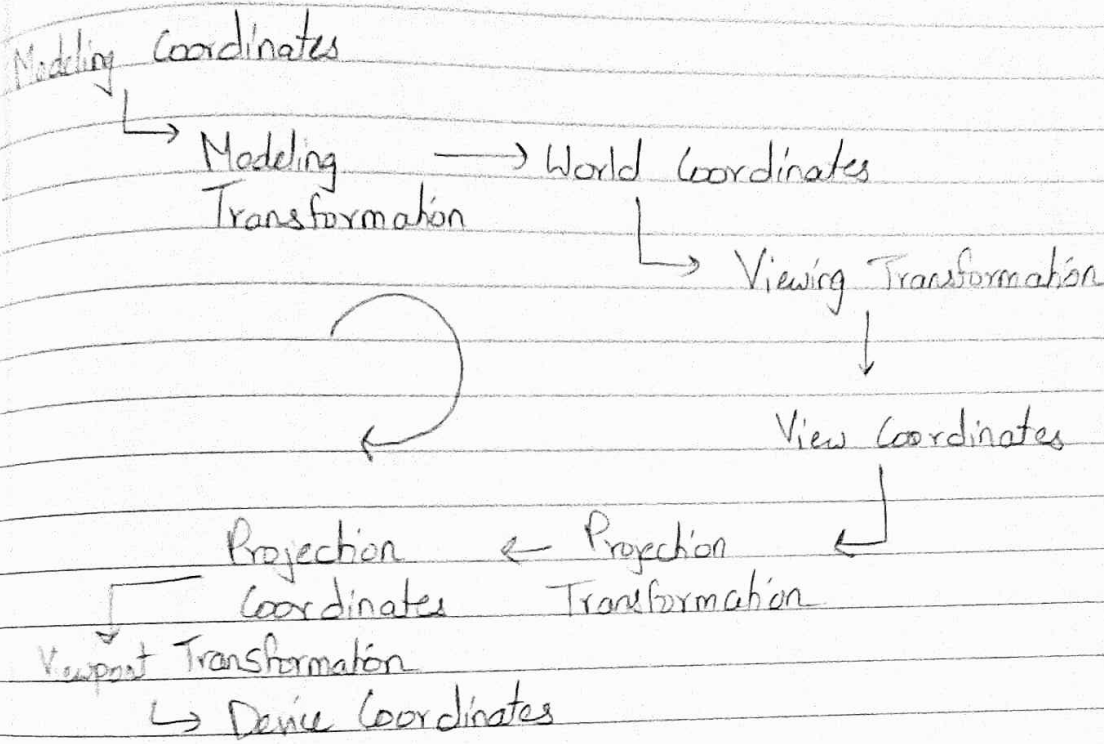 Modeling Coordinates
Modeling Transformation
World Coordinates
Viewing Transformation
View Coordinates
Projection Transformation
Projection Coordinates
Viewport Transformation
Device Coordinates